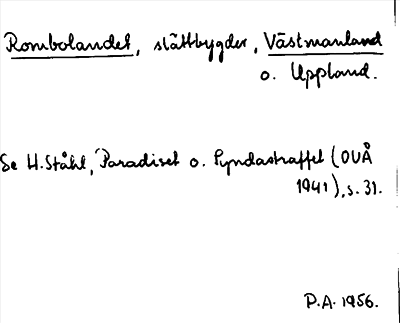 Rombolandet, slättbygder, Västmanland
o. Uppland.
Se H. Ståhl, Paradiset o. Syndastraffet (OUÅ
1941), s. 31.
P.A. 1956.